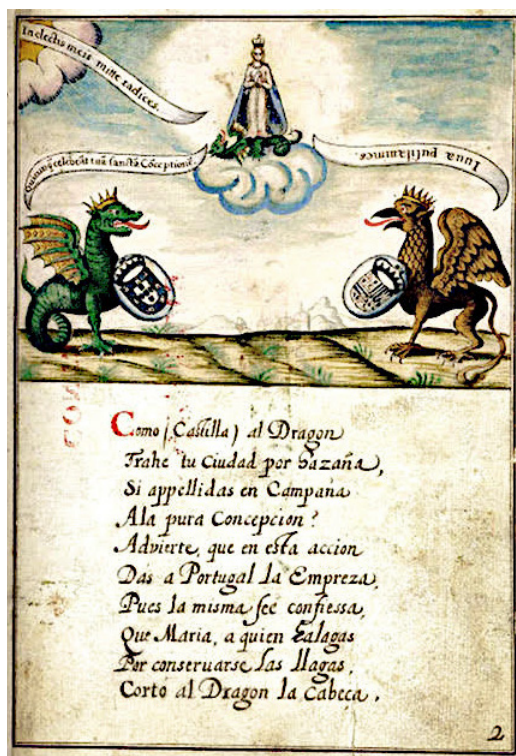 In electis meis mitte radices.
celebrãt tuã sanctã Cõceptionẽ.
Como (Castilla) al Dragon
Trahe tu Ciudad por hazaña,
Si appellidas en Campaña
Ala pura Concepcion?
Advierte, que en esta accion
Das a Portugal la Empreza,
Pues la misma feé confiessa,
Que Maria, a quien
Por conseruarse las llagas,
Cortó al Dragon la Cabeça.
2